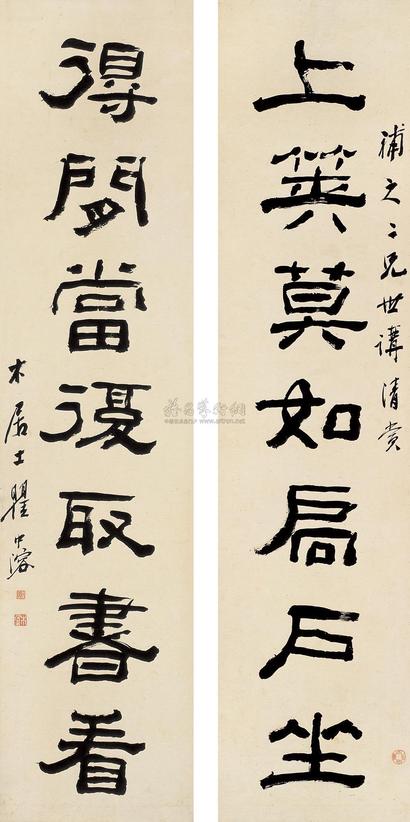 補之二兄世講清賞
上筭莫如扃戶坐
得閒當復取書看
木居士瞿中溶
www.artron.net